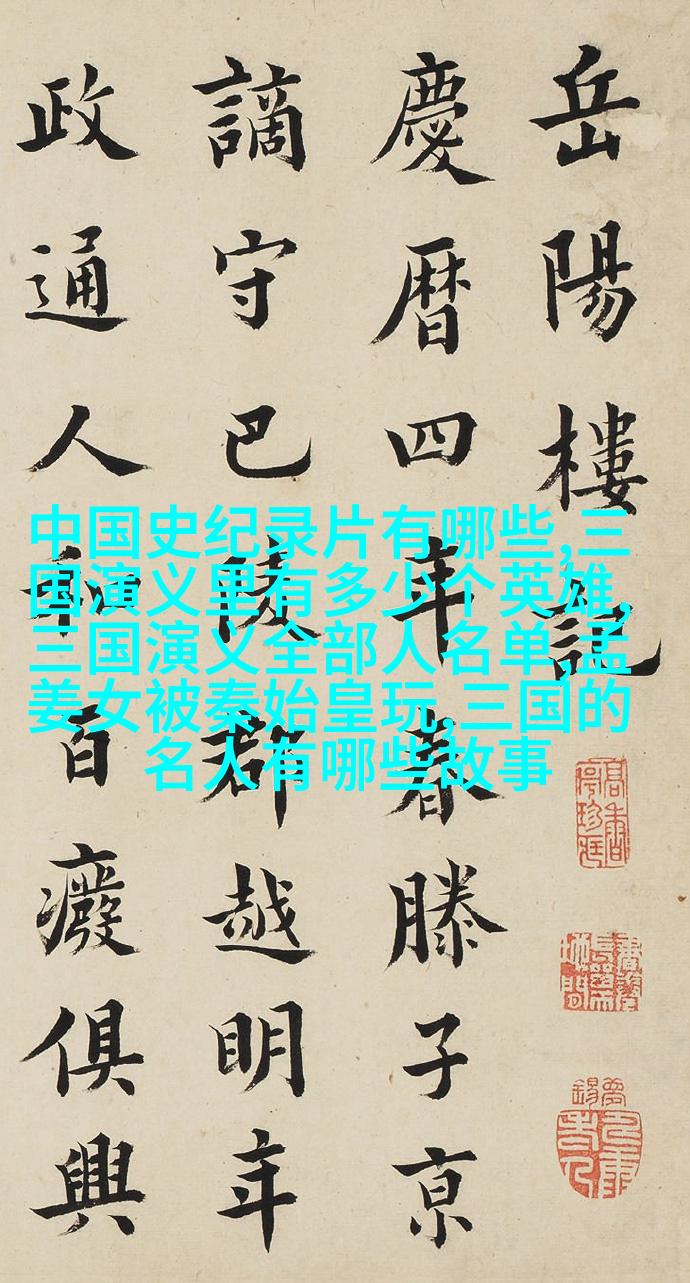 岳陽樓記
慶暦四年春滕子亰
謫守巴陵郡越明年
政通人和百癈俱興
中国史纪录片有哪些,三
国演义里有多少个英雄,
三国演义全部人名单,孟
姜女被秦始皇玩,三国的
名人有哪些故事